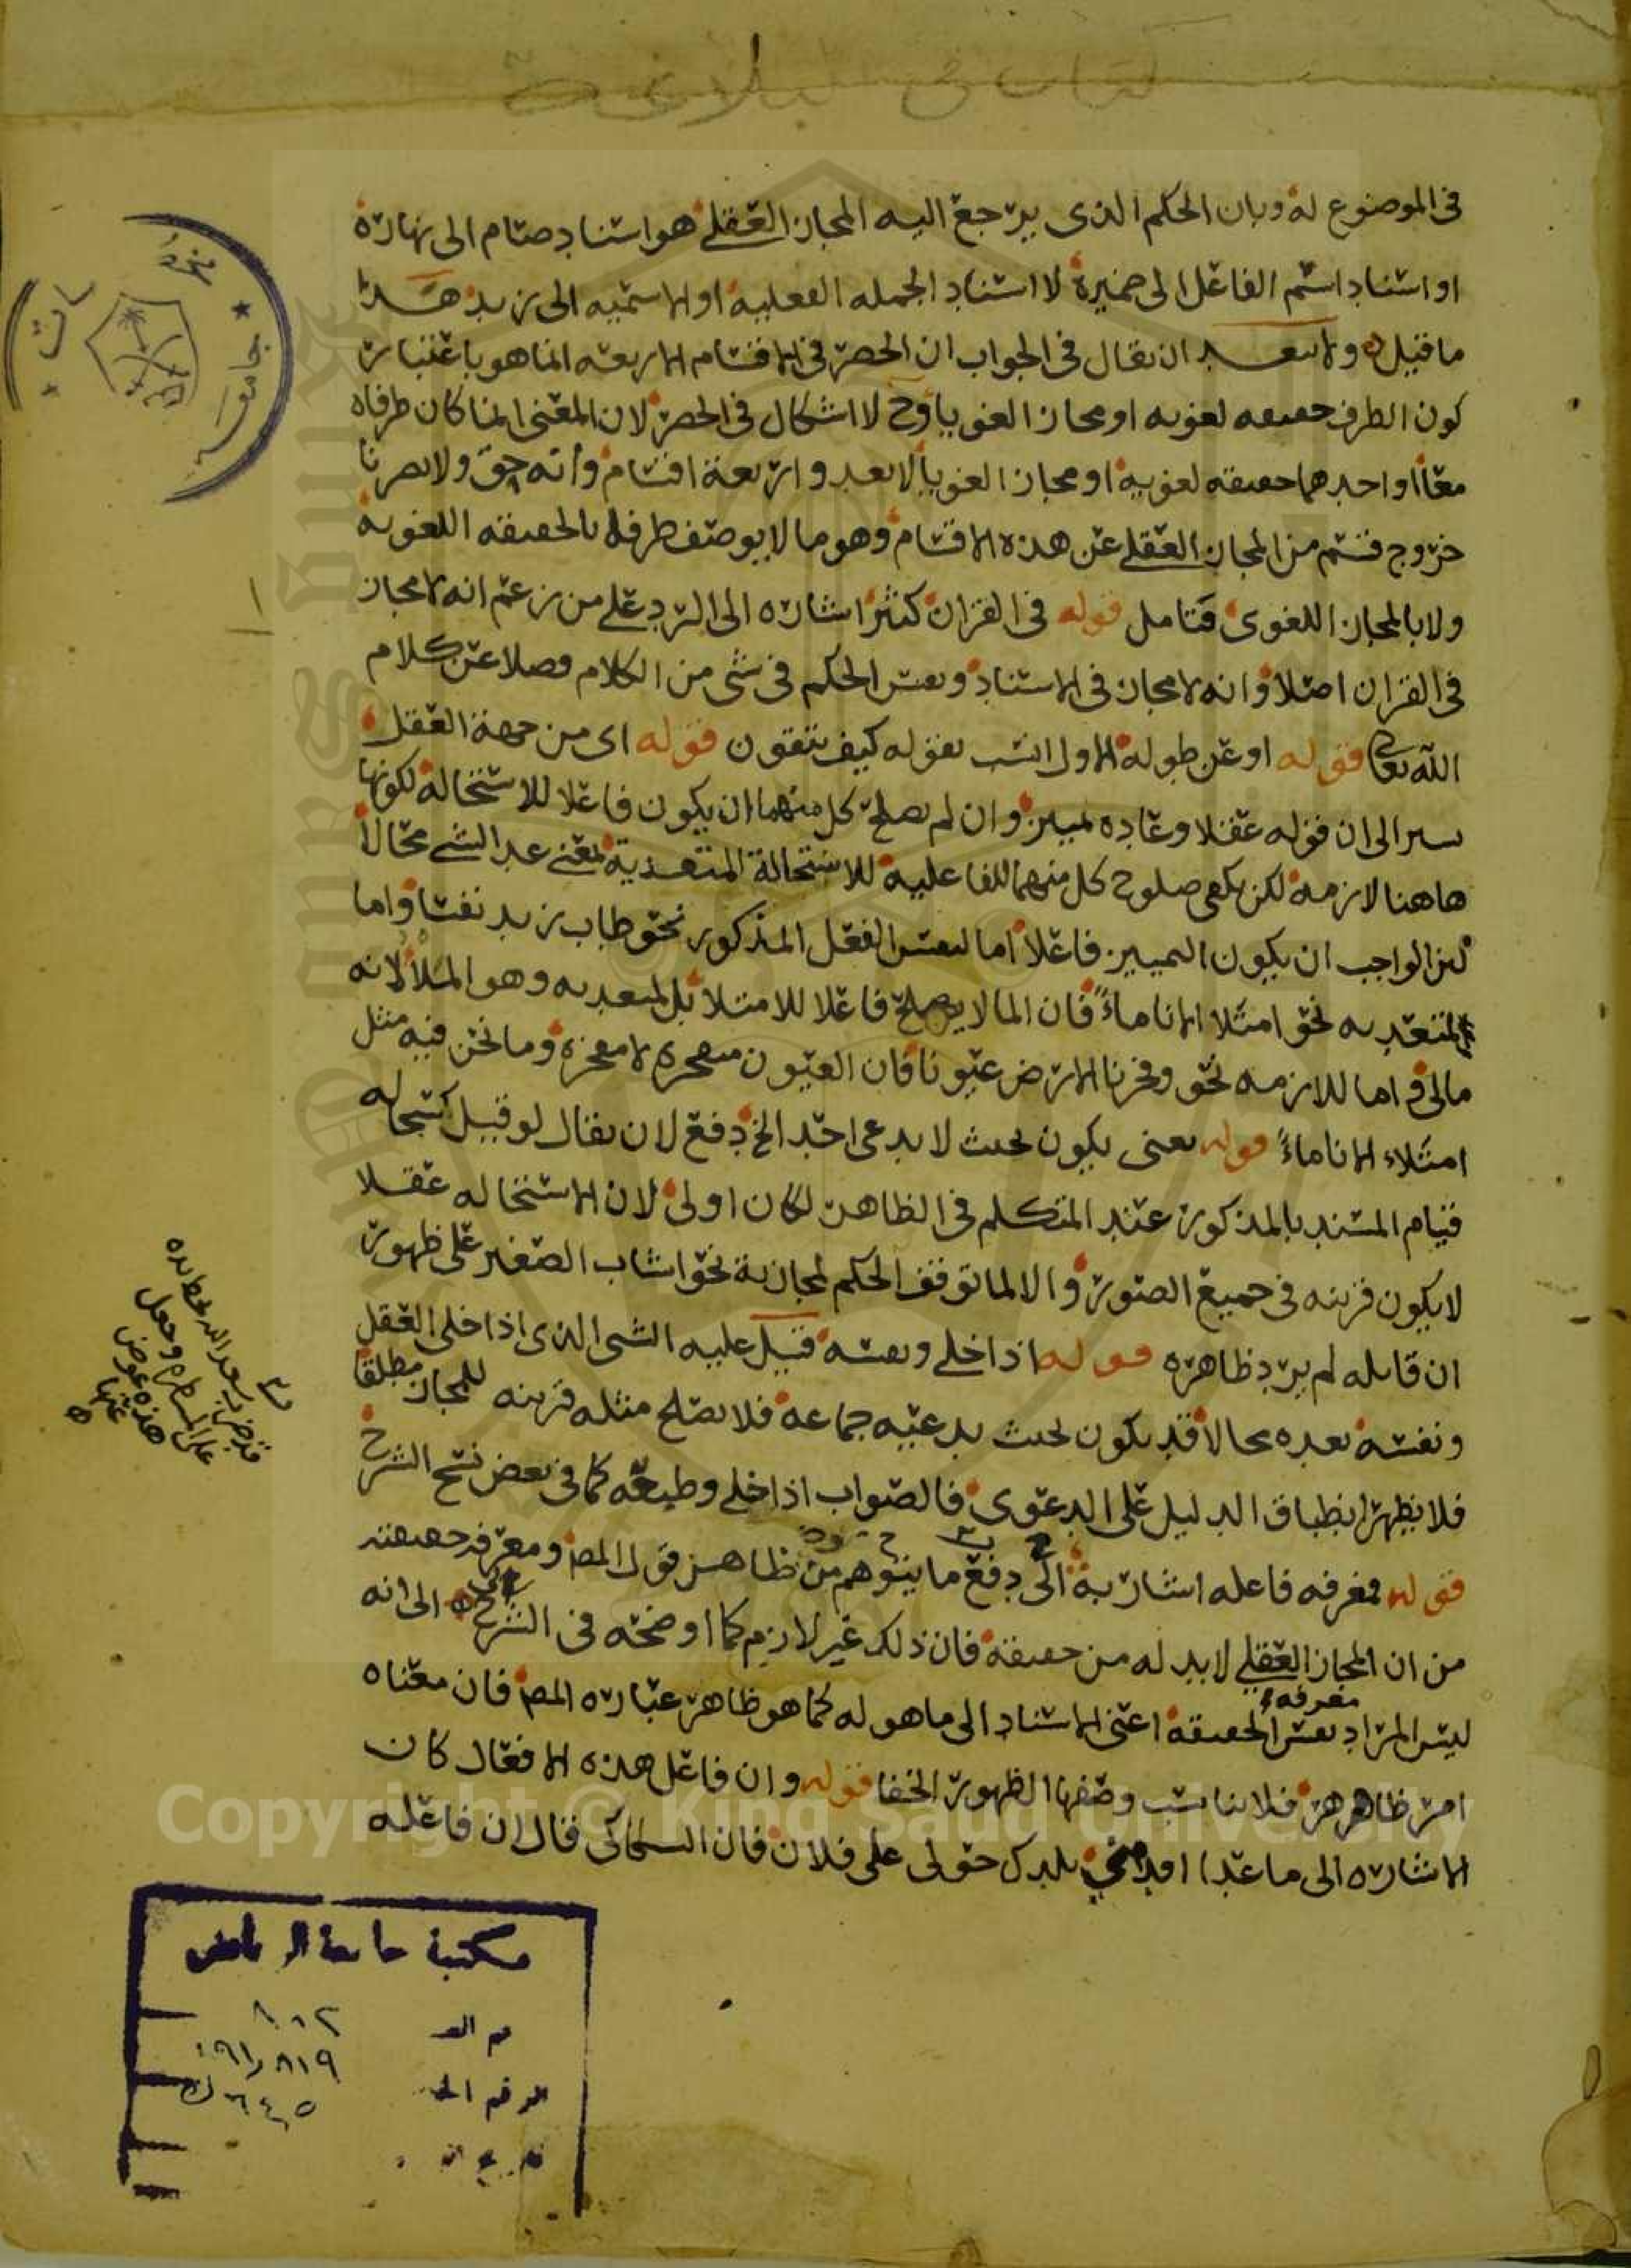 كتاب في البلاغة
في الموضوع له وبان الحكم الذى يرجع اليه المجاز العقلے هو اسناد صام الى نهاره
او اسناد اسم الفاعل الى ضميره لا اسناد الجمله الفعليه او الاسميه الى زيد هذا
ما قيل ولا يبعد ان يقال في الجواب ان الحصر في الاقسام الاربعه انما هو باعتبار
كون الطرف حقيقه لغويه او مجازا لغويا وح لا اشكال في الحصر لان المعنى انما كان طرفاه
معا او احدهما حقيقه لغويه او مجازا لغويا لا يعدو اربعة اقسام وانه حق ولا يضرنا
خروج قسم من المجاز العقلے عن هذه الاقسام وهو ما لا يوصف طرفاه بالحقيقه اللغويه
ولا بالمجاز اللغوى فتامل قوله في القران كثير اشاره الى الرد علے من زعم انه لا مجاز
في القران اصلا وانه لا مجاز في الاسناد ونفس الحكم في شى من الكلام فضلا عن كلام
الله تعالى قوله او عن طوله الاول انسب بقوله كيف يتقون قوله اى من جهة العقل
يشير الى ان قوله عقلا وعاده تمييز وان لم يصلح كل منهما ان يكون فاعلا للاستحالة لكونها
هاهنا لازمه لكن يكفى صلوح كل منهما للفاعليه للاستحالة المتعدية بمعنى عد الشے محالا
اذ الواجب ان يكون التمييز فاعلا اما لنفس الفعل المذكور نحو طاب زيد نفسا واما
لمتعديه نحو امتلا الانا ماءً فان الما لا يصلح فاعلا للامتلا بل لمتعديه وهو الملأ لانه
مالى واما للازمه نحو وفجرنا الارض عيونا فان العيون متفجره لا مفجره وما نحن فيه مثل
امتلاء الانا ماءً قوله يعنى يكون بحيث لا يدعى احد الخ دفع لان يقال لو قيل كاستحاله
قيام المسند بالمذكور عند المتكلم في الظاهر لكان اولى لان الاستحاله عقلا
لا يكون قرينه في جميع الصور والا لما توقف الحكم بمجازية نحو اشاب الصغير على ظهور
ان قايله لم يرد ظاهره قوله اذا خلے ونفسه قيل عليه الشى الذى اذا خلى العقل
ونفسه يعده محالا قد يكون بحيث يدعيه جماعه فلا يصلح مثله قرينه للمجاز مطلقا
فلا يظهر انطباق الدليل على الدعوى فالصواب اذا خلے وطبعه كما في بعض نسخ الشرح
قوله فمعرفه فاعله اشار به الى دفع ما يتوهم من ظاهر قول المص ومعرفه حقيقته
من ان المجاز العقلے لا بد له من حقيقة فان ذلك غير لازم كما اوضحه في الشرح الى انه
ليس المراد نفس الحقيقه اعنى الاسناد الى ما هو له كما هو ظاهر عباره المص فان معناه
معرفه
امر ظاهر فلا يناسب وصفها الظهور الخفا قوله وان فاعل هذه الافعال كان
الاشاره الى ما عدا اقدمنى بلدك حق لى على فلان فان السكاكى قال ان فاعله
هذه عوض
عنها
جامعة
مكتبة جامعة الرياض
رقم
الرقم
٨١٩